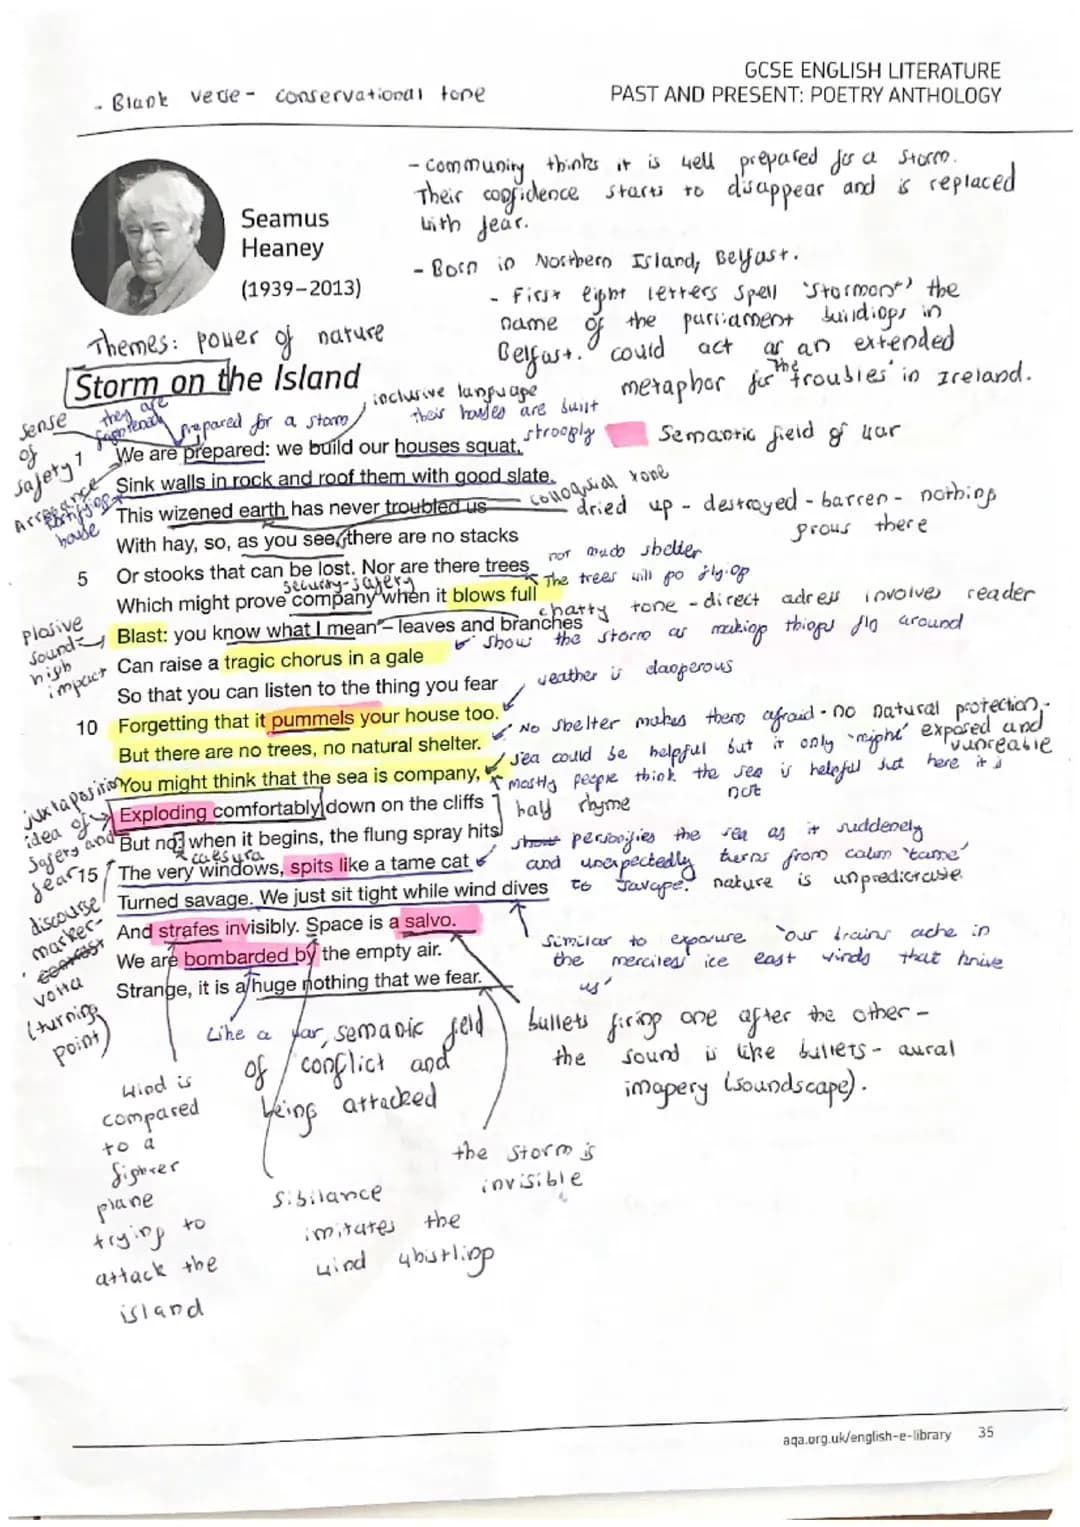 - Blank verse - conservational tone
GCSE ENGLISH LITERATURE
PAST AND PRESENT: POETRY ANTHOLOGY
- Community thinks it is well prepared for a storm.
Their confidence starts to disappear and is replaced
with fear.
Seamus
Heaney
(1939–2013)
- Born in Northern Island, Belfast.
- First eight letters spell 'Stormont' the
name of the parliament buildings in
Belfast. could act as an extended
metaphor for 'the troubles' in Ireland.
Themes: power of nature
Storm on the Island
inclusive language
their houses are built
strongly
they are
prepared for a storm
Semantic field of war
sense
of
safety
Arrogance
fortifying
house
1 We are prepared: we build our houses squat,
Sink walls in rock and roof them with good slate.
colloquial tone
This wizened earth has never troubled us
dried up - destroyed - barren - nothing
grows there
With hay, so, as you see, there are no stacks
not much shelter
5 Or stooks that can be lost. Nor are there trees
The trees will go flying
security-safety
Which might prove company when it blows full
chatty tone - direct adress involves reader
plosive
sound=
high
impact
Blast: you know what I mean – leaves and branches
show the storm as making things fly around
Can raise a tragic chorus in a gale
So that you can listen to the thing you fear
weather is dangerous
10 Forgetting that it pummels your house too.
No shelter makes them afraid - no natural protection -
exposed and
But there are no trees, no natural shelter.
sea could be helpful but it only 'might'
You might think that the sea is company,
mostly people think the sea is helpful but here it is
not
juxtaposition
idea of
safety and
fear
Exploding comfortably down on the cliffs
half rhyme
But no: when it begins, the flung spray hits
caesura
personifies the sea as it suddenely
and unexpectedly turns from calm 'tame'
to savage. nature is unpredictable
15 The very windows, spits like a tame cat
Turned savage. We just sit tight while wind dives
discourse
marker-
volta
(turning
point)
And strafes invisibly. Space is a salvo.
Similar to exposure 'our brains ache in
the merciless ice east winds that knive
us'
We are bombarded by the empty air.
Strange, it is a huge nothing that we fear.
Like a war, semanic field
of conflict and
being attacked
bullets firing one after the other -
the sound is like bullets - aural
imagery (soundscape).
wind is
compared
to a
fighter
plane
trying to
attack the
island
the storm is
invisible
Sibilance
imitates the
wind whistling
aqa.org.uk/english-e-library 35